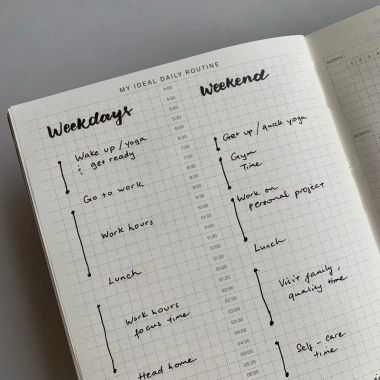 MY IDEAL DAILY ROUTINE
Weekdays
Weekend
Wake up / yoga
get ready
Go to work
Work hours
Lunch
Work hours
focus time
Head home
4:00
4:30
5:00
5:30
6:00
6:30
7:00
7:30
8:00
8:30
9:00
9:30
10:00
10:30
11:00
11:30
12:00
12:30
01:00
01:30
02:00
02:30
03:00
03:30
04:00
04:30
05:00
05:30
06:00
Get up / quick yoga
Gym
Time
Work on
personal project
Lunch
Visit family,
quality time
Self-care
time
MONTH
1 2 3 4
MONTH